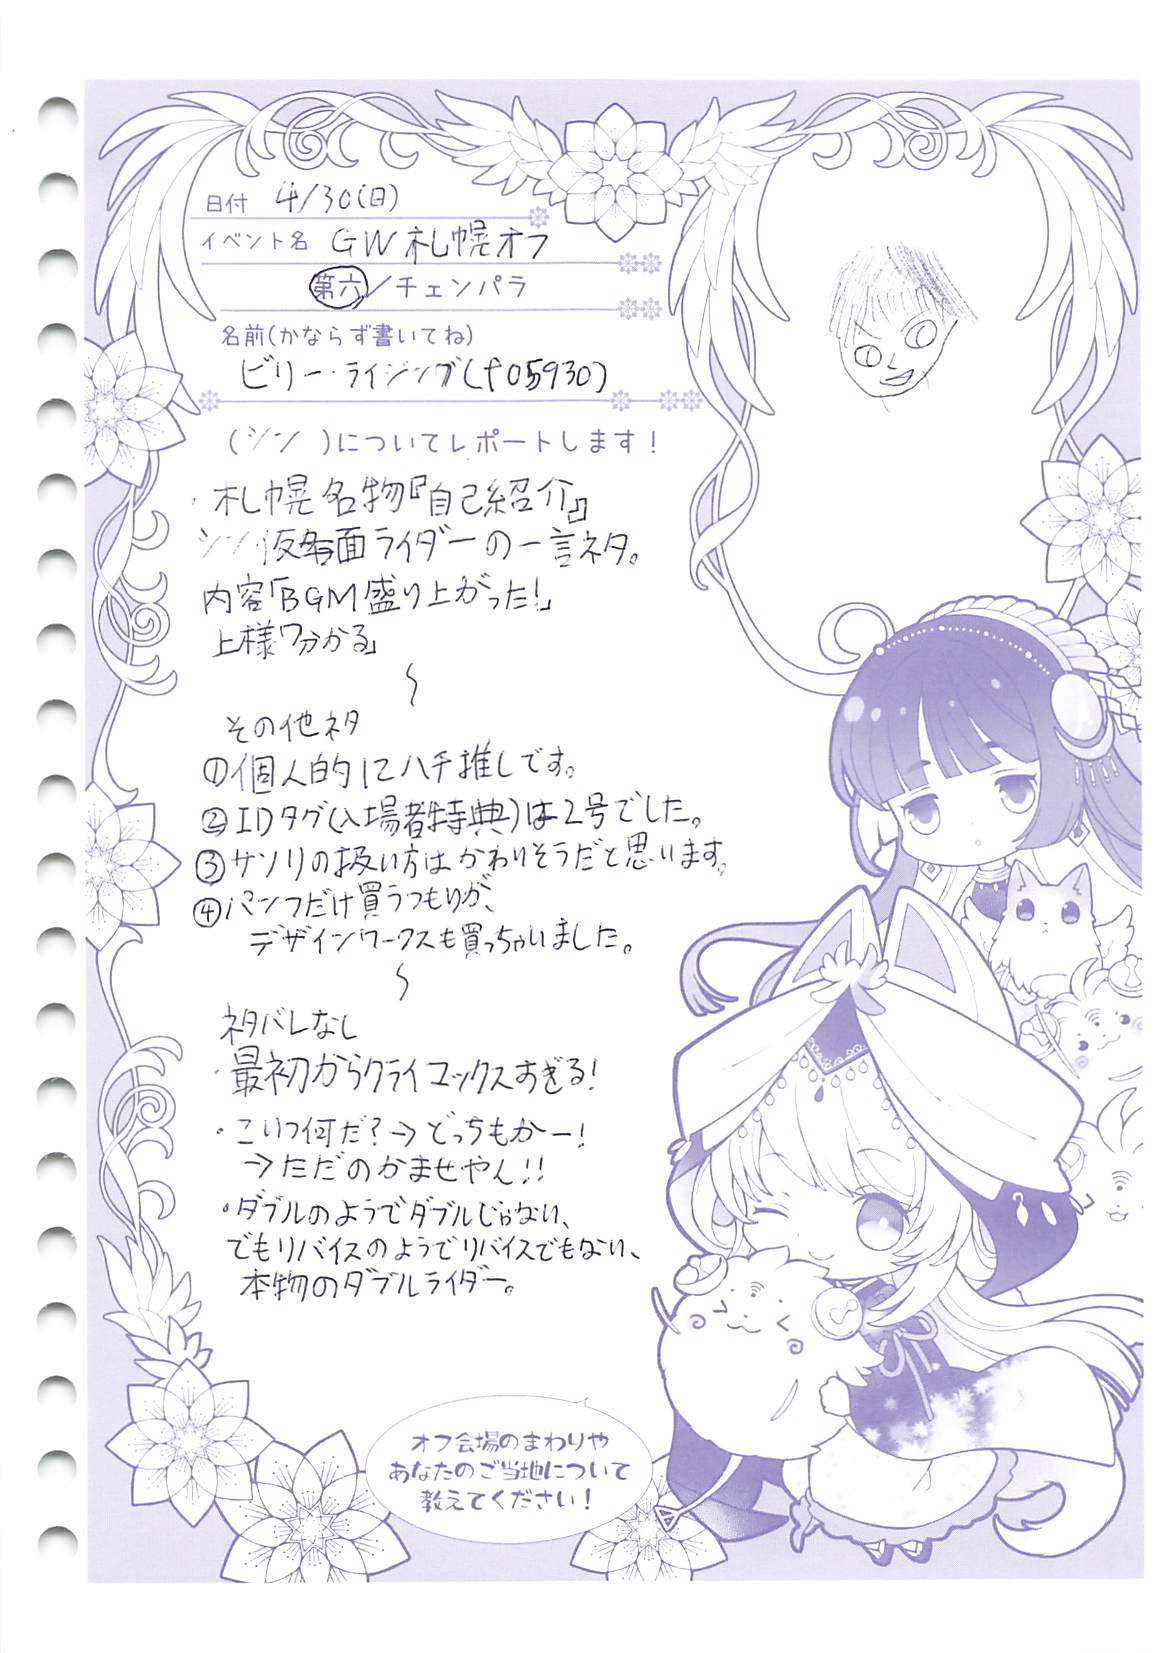 日付 4/30(日)
イベント名 GW札幌オフ
第六/チェンパラ
名前(かならず書いてね)
ビリー・ライジング(f05930)
(シン )についてレポートします!
・札幌名物『自己紹介』
シン仮面ライダーの一言ネタ。
内容「BGM盛り上がった!」
上様ワ分かる」
〜
その他ネタ
①個人的にハチ推しです。
②IDタグ(入場者特典)は2号でした。
③サソリの扱い方はかわりそうだと思います。
④パンフだけ買うつもりが、
デザインワークスも買っちゃいました。
〜
ネタバレなし
・最初からクライマックスすぎる!
・こいつ何だ?→どっちもかー!
→ただのかませやん!!
・ダブルのようでダブルじゃない、
でもリバイスのようでリバイスでもない、
本物のダブルライダー。
オフ会場のまわりや
あなたのご当地について
教えてください!